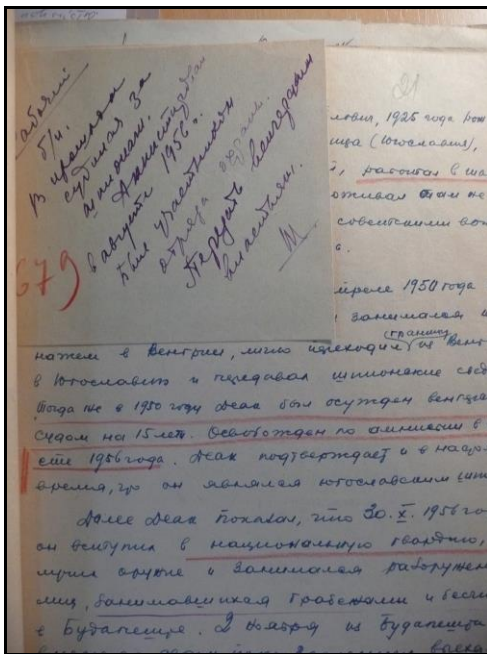 рабочий
б/п.
В прошлом
судимая за
шпионаж.
Амнистирован
в августе 1956г.
был участником
отряда охраны.
Передать венгерским
властям.
679
лович, 1925 года рож
ица (Югославия),
й, работал в ша
оживал там же
советскими вой
в.
апреле 1950 года
занимался ш
границу
нажем в Венгрии, лично переходил из Венг
в Югославию и передавал шпионские свед
Тогда же в 1950 году Деак был осужден венгерс
судом на 15 лет. Освобожден по амнистии в
сте 1956 года. Деак подтверждает и в наст.
время, что он являлся югославским шп
Далее Деак показал, что 30.X.1956 го
он вступил в национальную гвардию,
лучил оружие и занимался разоружен
лиц, занимавшихся грабежами и бесч
в Будапеште. 2 ноября из Будапешта